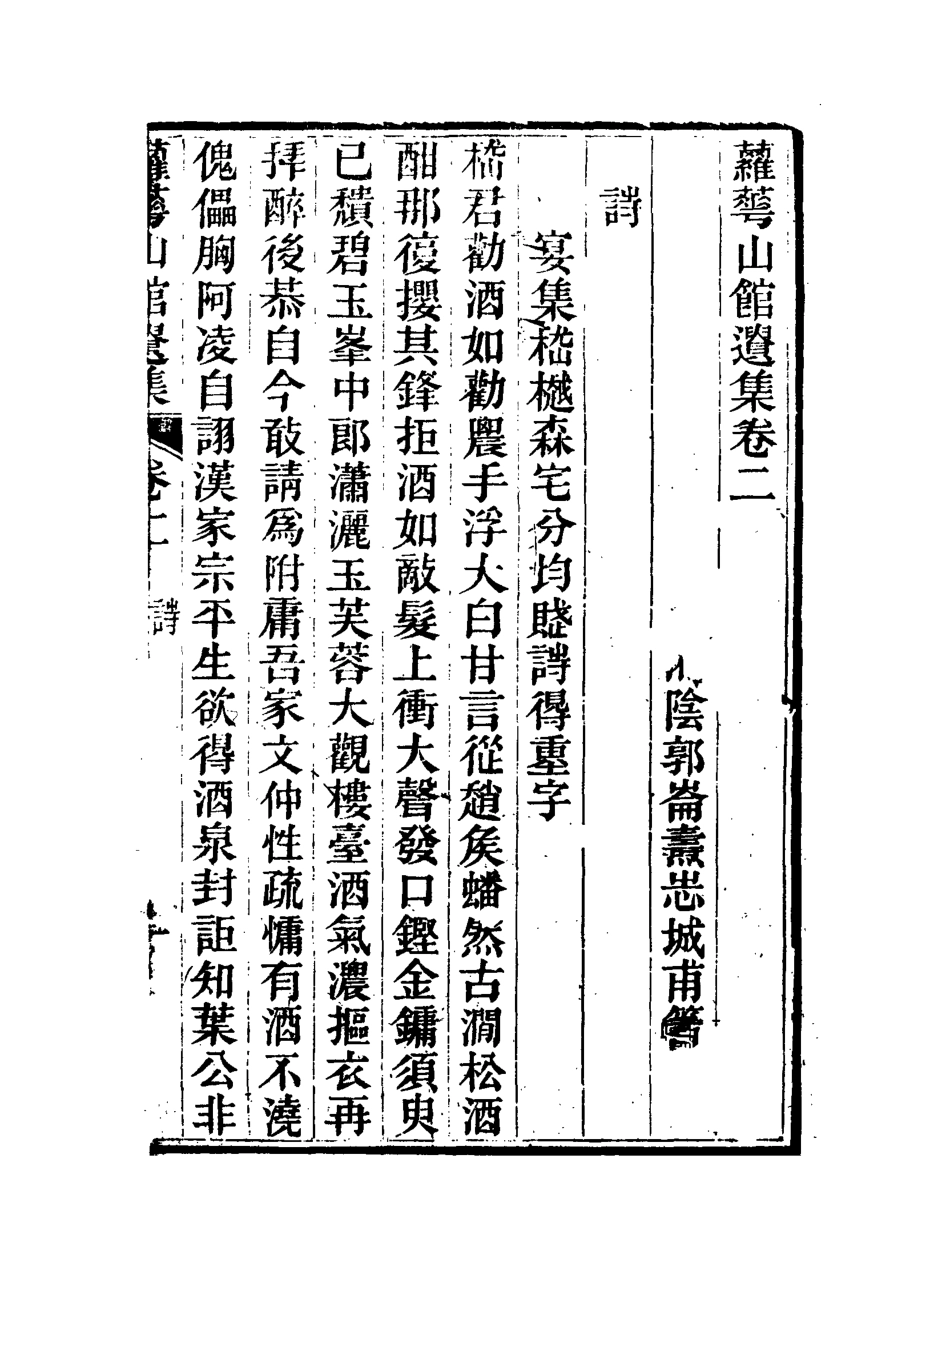 蘿蕚山館遺集卷二
陰郭崙燾志城甫著
詩
宴集嵇樾森宅分均賦詩得重字
嵇君勸酒如勸農手浮大白甘言從趙矦蟠然古澗松酒
酣那復攖其鋒拒酒如敵髮上衝大聲發口鏗金鏞須臾
已穨碧玉峯中郎瀟灑玉芙蓉大觀樓臺酒氣濃摳衣再
拜醉後恭自今敢請爲附庸吾家文仲性疏慵有酒不澆
傀儡胸阿凌自詡漢家宗平生欲得酒泉封詎知葉公非
蘿蕚山館遺集 卷二 詩